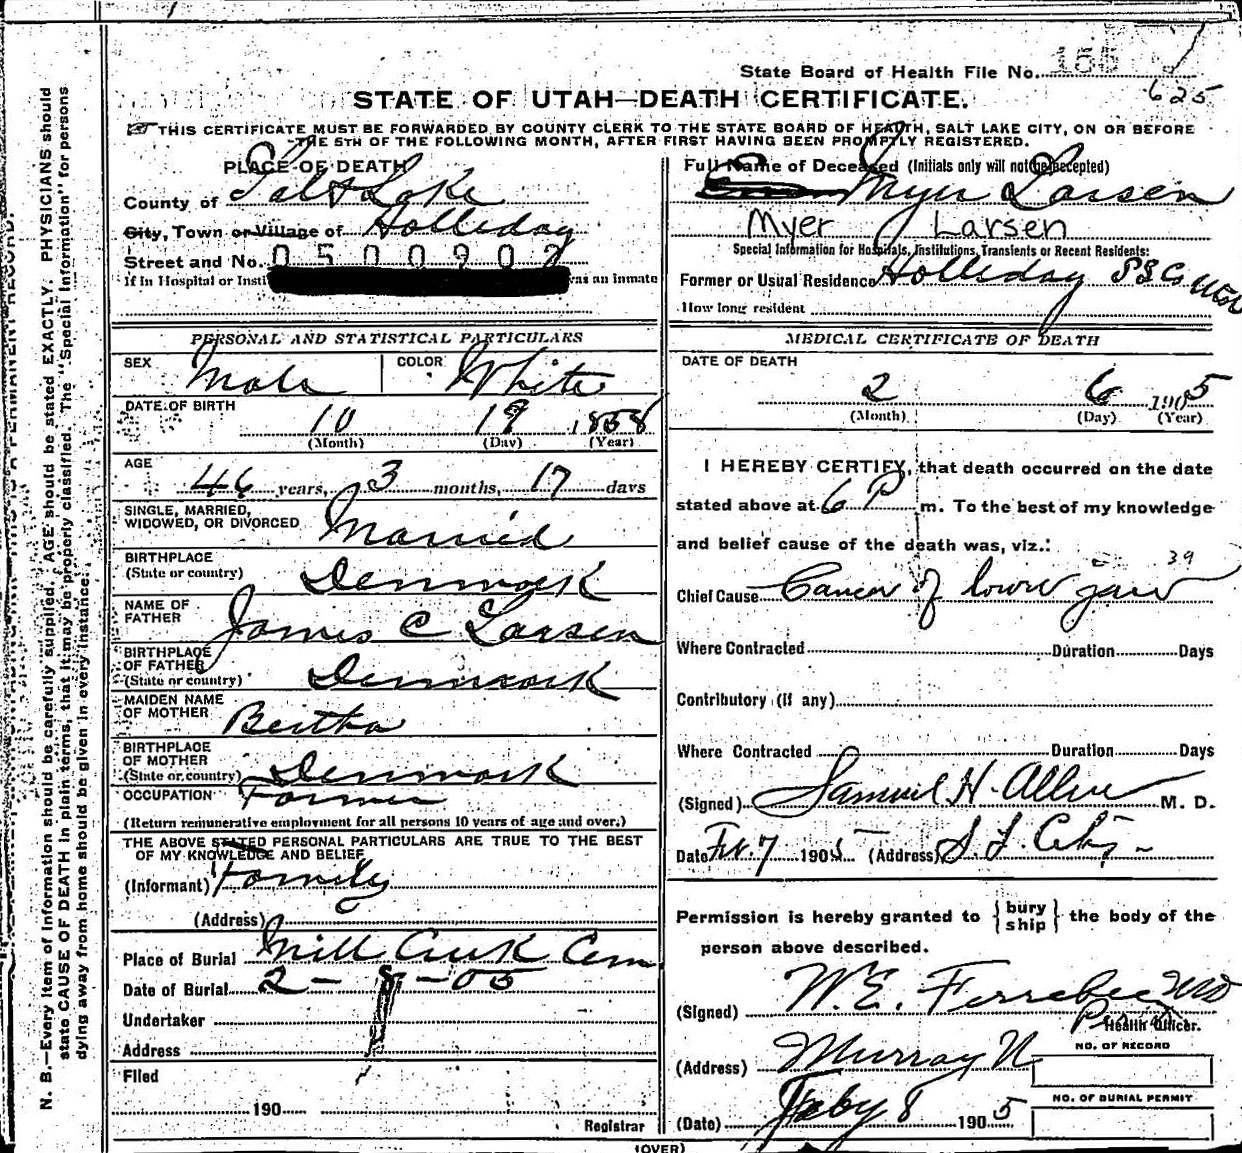 State Board of Health File No. 155
625
STATE OF UTAH—DEATH CERTIFICATE.
THIS CERTIFICATE MUST BE FORWARDED BY COUNTY CLERK TO THE STATE BOARD OF HEALTH, SALT LAKE CITY, ON OR BEFORE
THE 5TH OF THE FOLLOWING MONTH, AFTER FIRST HAVING BEEN PROMPTLY REGISTERED.
PLACE OF DEATH
County of Salt Lake
City, Town or Village of Holleday
Street and No. 0500902
If In Hospital or Insti was an inmate
Full Name of Deceased (Initials only will not be accepted)
Myer Larsen
Myer Larsen
Special Information for Hospitals, Institutions, Transients or Recent Residents:
Former or Usual Residence Holleday S L Co Utah
How long resident
PERSONAL AND STATISTICAL PARTICULARS
SEX Male COLOR White
DATE OF BIRTH
10 19 1858
(Month) (Day) (Year)
AGE
46 years, 3 months, 17 days
SINGLE, MARRIED,
WIDOWED, OR DIVORCED Married
BIRTHPLACE
(State or country) Denmark
NAME OF
FATHER James C Larsen
BIRTHPLACE
OF FATHER
(State or country) Denmark
MAIDEN NAME
OF MOTHER Bertha
BIRTHPLACE
OF MOTHER
(State or country) Denmark
OCCUPATION Farmer
(Return remunerative employment for all persons 10 years of age and over.)
THE ABOVE STATED PERSONAL PARTICULARS ARE TRUE TO THE BEST
OF MY KNOWLEDGE AND BELIEF
(Informant) Family
(Address)
Place of Burial Mill Creek Cem
Date of Burial 2-8-05
Undertaker
Address
Filed
190
Registrar
MEDICAL CERTIFICATE OF DEATH
DATE OF DEATH
2 6 1905
(Month) (Day) (Year)
I HEREBY CERTIFY, that death occurred on the date
stated above at 6 P m. To the best of my knowledge
and belief cause of the death was, viz.:
39
Chief Cause Cancer of lower jaw
Where Contracted Duration Days
Contributory (if any)
Where Contracted Duration Days
(Signed) Samuel H. Allen M. D.
Date Feb. 7 1905 (Address) S. L. City
Permission is hereby granted to {bury
ship} the body of the
person above described.
(Signed) W. E. Ferrebee MD
Health Officer.
(Address) Murray U
NO. OF RECORD
NO. OF BURIAL PERMIT
(Date) Feby 8 1905
(OVER)
N. B.—Every item of information should be carefully supplied. AGE should be stated EXACTLY. PHYSICIANS should
state CAUSE OF DEATH in plain terms, that it may be properly classified. The "Special Information" for persons
dying away from home should be given in every instance.